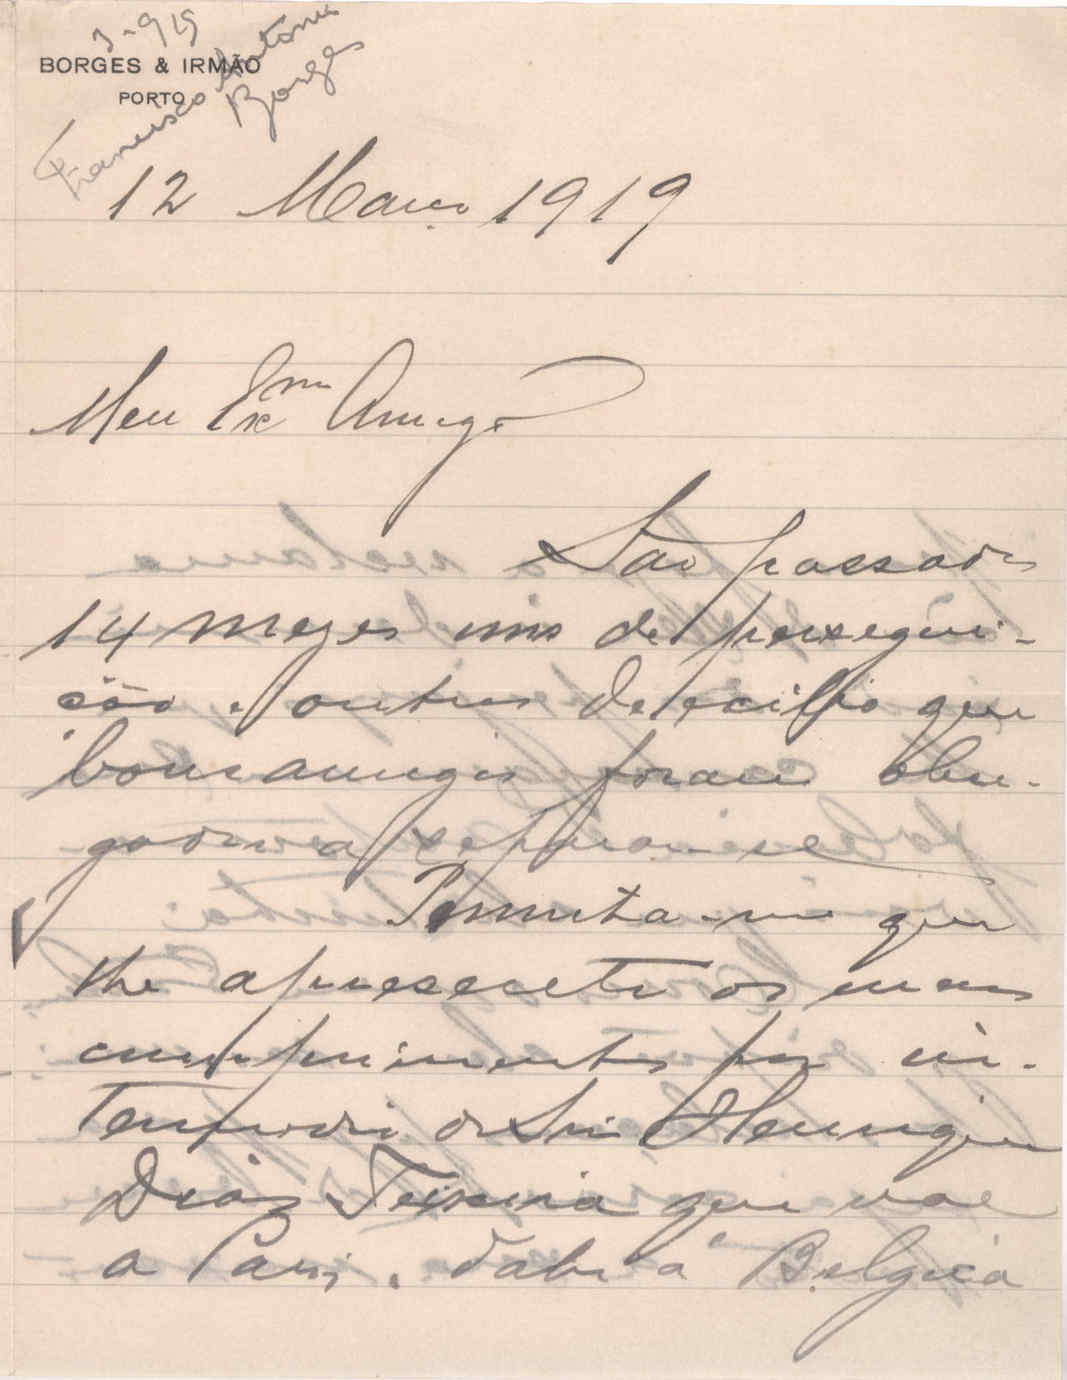 3-919
BORGES & IRMÃO
PORTO
Francisco Antonio
Borges
12 Março 1919
Meu Exmo Amigo
São passados
14 mezes uns de persegui-
ção e outros de exilio que
bons amigos foram obri-
gados a separar-se
Permita-me que
lhe apresente os meus
cumprimentos por in-
termedio do Snr Henrique
Dias Teixeira que vae
a Paris, e dahi á Belgica